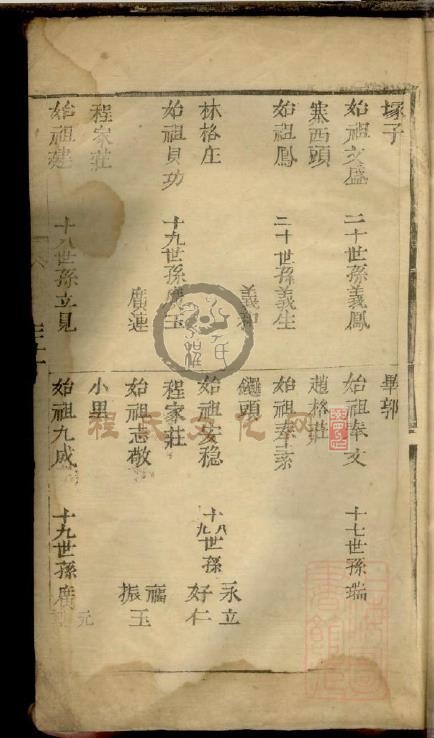 塚子
始祖文盛 二十世孫義鳳
寨西頭
始祖鳳 二十世孫義生
義和
林格庄
始祖貝功 十九世孫廣玉
廣連
程家莊
始祖建 十八世孫立見
畢郭
始祖奉文 十七世孫瑞
趙格莊
始祖奉素
疃頭
始祖安稳 十八世孫永立
十九世孫好仁
程家莊
始祖志敬 福玉
振
小里
始祖九成 十九世孫廣
元
程氏文化网